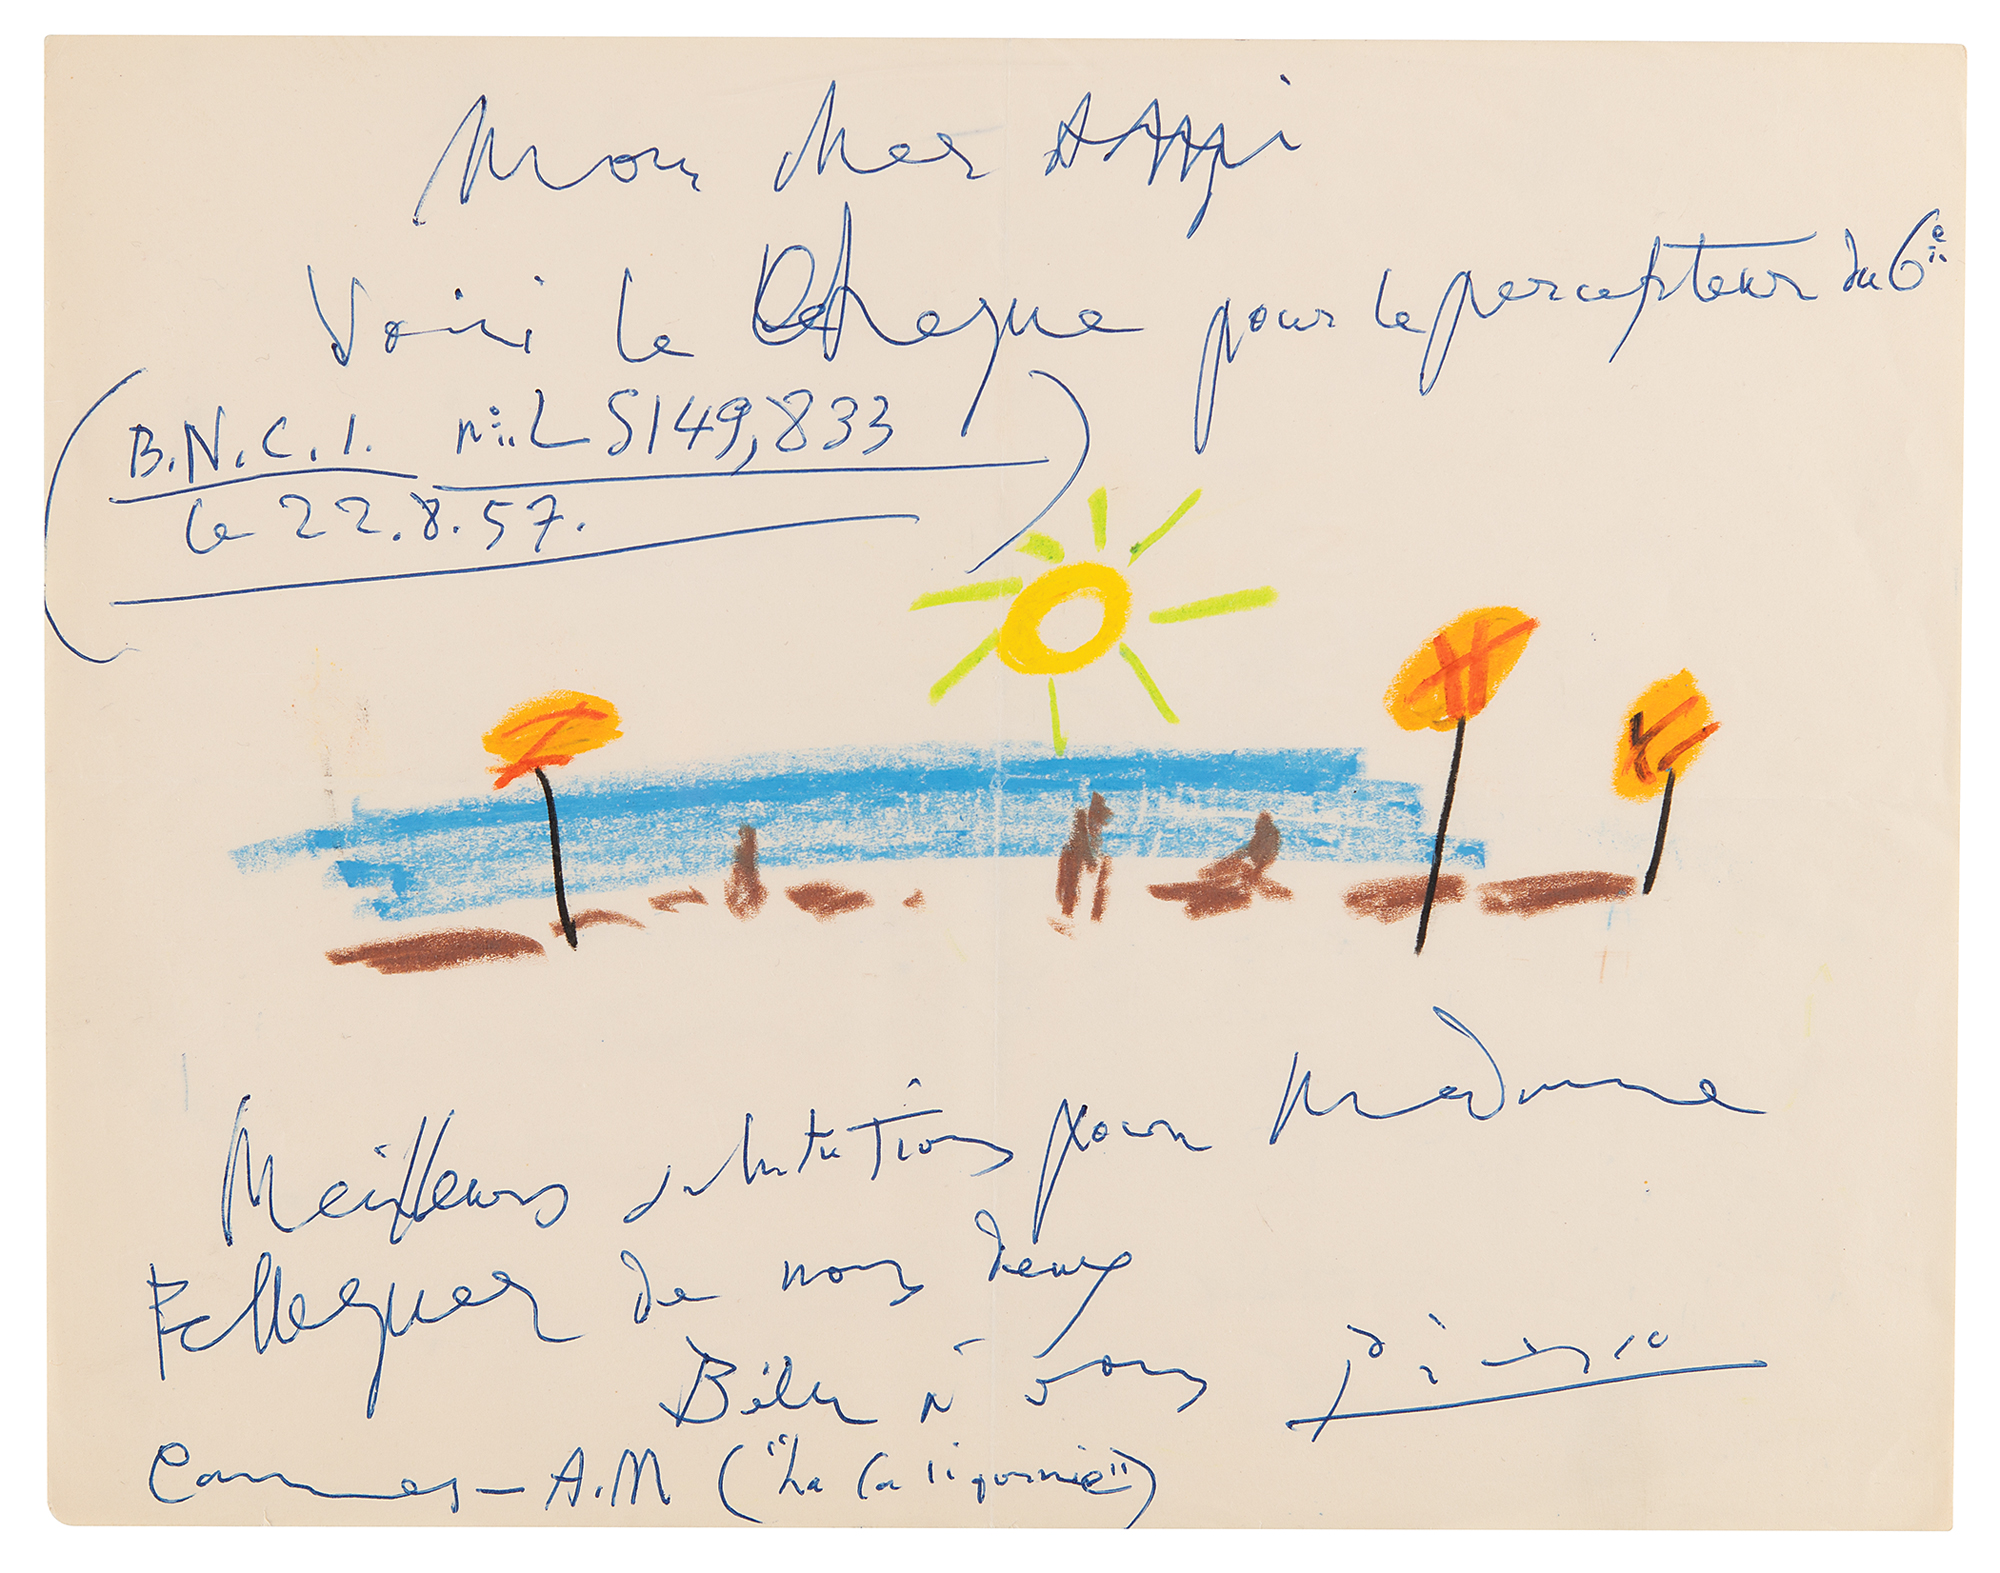 Mon cher
Voici le Cheque pour le percepteur du 6è
(B.N.C.I. n° L 5149,833
le 22.8.57.)
Meilleurs salutations pour Madame
de nous deux
Bien à vous Picasso
Cannes - A.M ("La Californie")